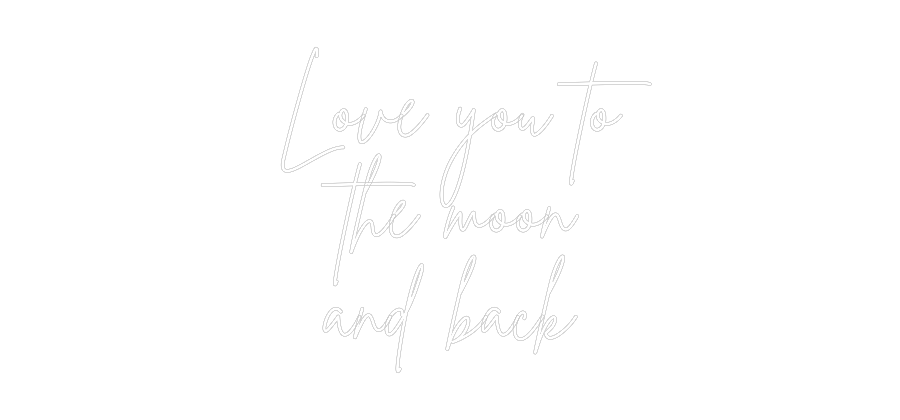 Love you to
the moon
and back